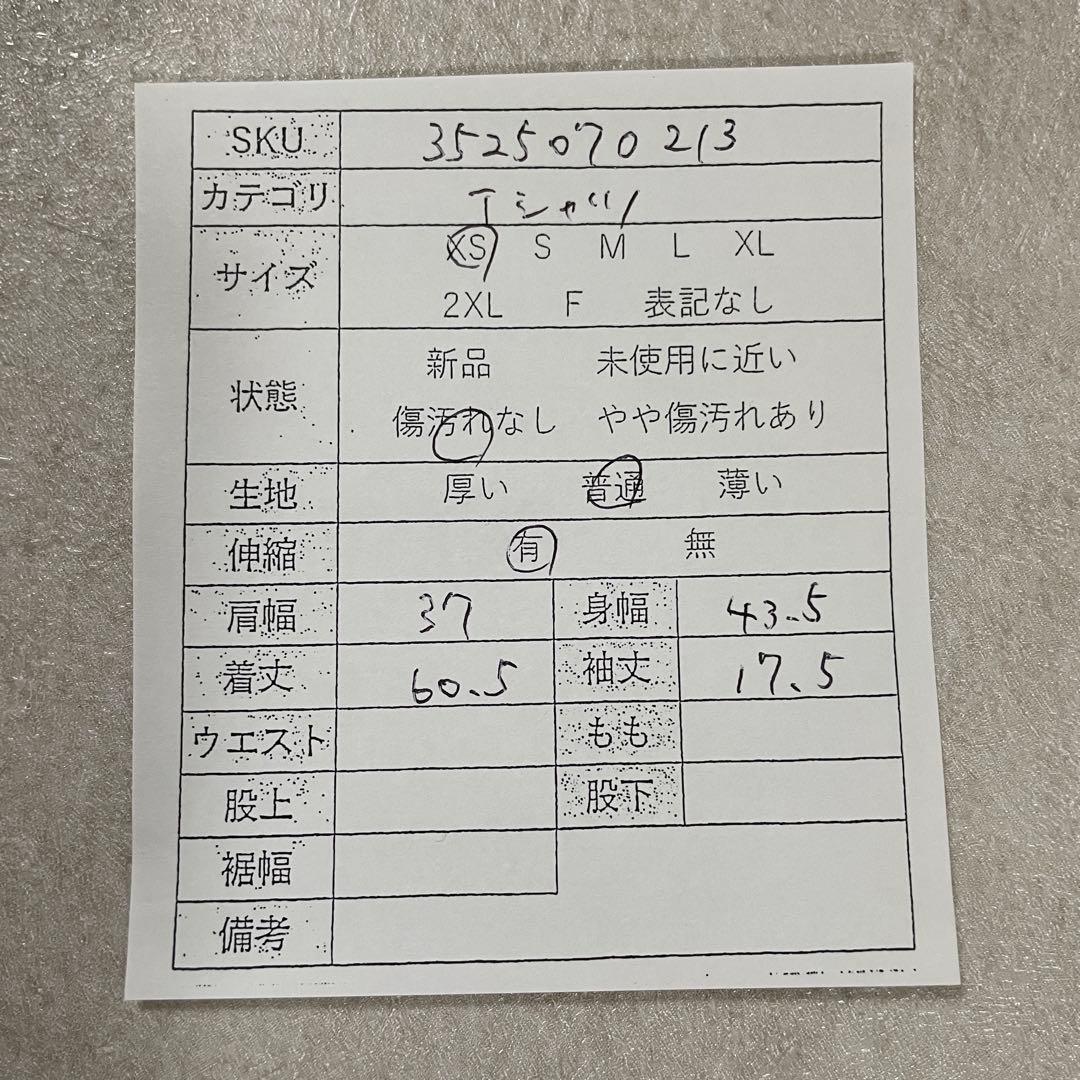 SKU 3525070213
カテゴリ Tシャツ
サイズ XS S M L XL
2XL F 表記なし
状態 新品 未使用に近い
傷汚れなし やや傷汚れあり
生地 厚い 普通 薄い
伸縮 有 無
肩幅 37 身幅 43.5
着丈 60.5 袖丈 17.5
ウエスト もも
股上 股下
裾幅
備考